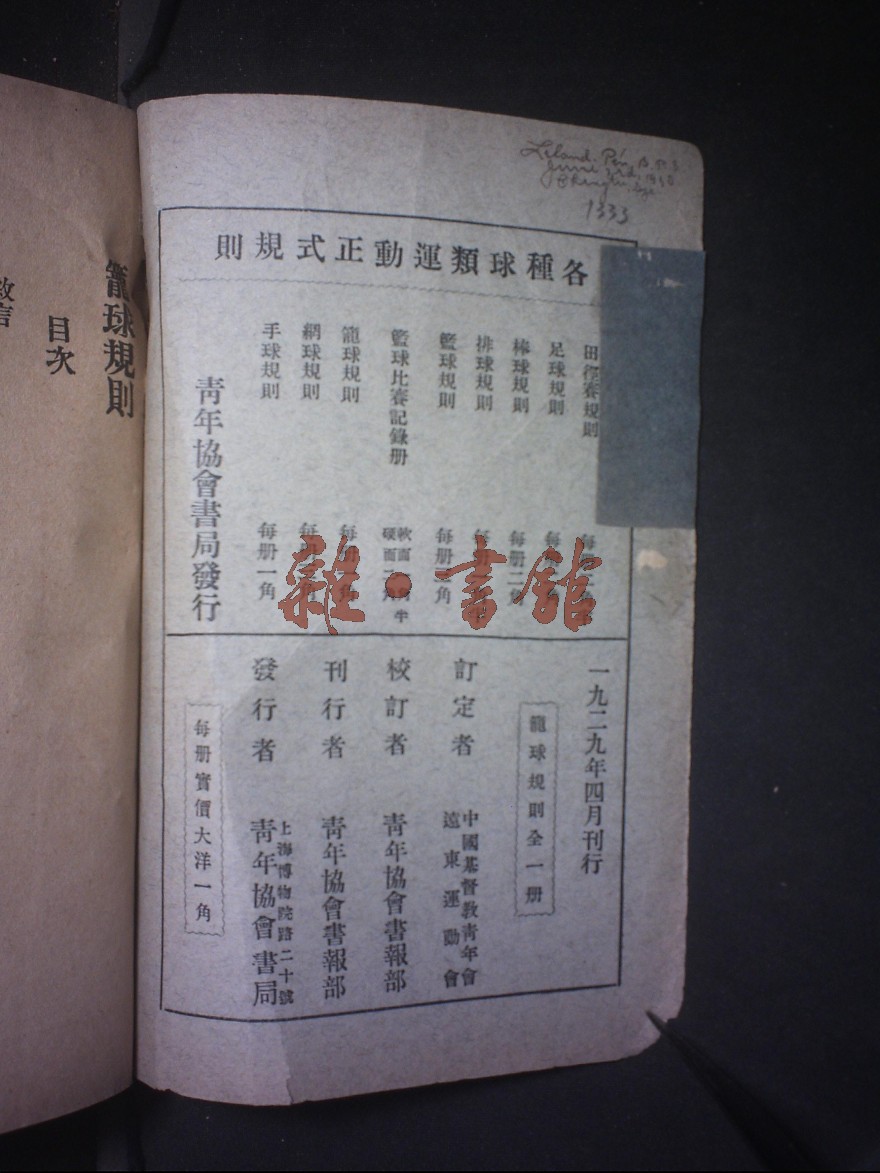 各種球類運動正式規則
田徑賽規則
足球規則 每
棒球規則 每册二角
排球規則 每
籃球規則 每册二角
籃球比賽記錄册 軟面 角 硬面 角半
籠球規則 每 一角
網球規則 每 角
手球規則 每册一角
青年協會書局發行
一九二九年四月刊行
籠球規則全一册
訂定者 中國基督教青年會 遠東運動會
校訂者 青年協會書報部
刊行者 青年協會書報部
發行者 上海博物院路二十號 青年協會書局
每册實價大洋一角
1333
籠球規則
目次
雜·書舘